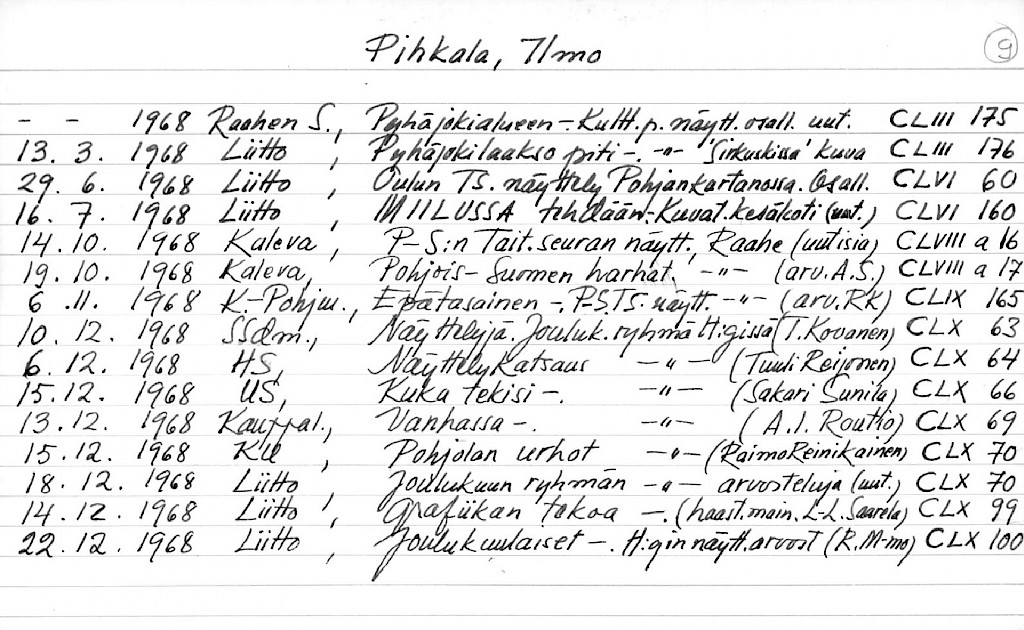 Pihkala, Ilmo 9
- - 1968 Raahen S., Pyhäjokialueen -. Kultt.p. näytt. osall. uut. CLIII 175
13. 3. 1968 Liitto, Pyhäjokilaakso piti -. -"- 'Sirkuskissa' kuva CLIII 176
29. 6. 1968 Liitto, Oulun TS. näyttely Pohjankartanossa. Osall. CLVI 60
16. 7. 1968 Liitto, MIILUSSA tehdään -. Kuvat. kesäkoti (uut.) CLVI 160
14. 10. 1968 Kaleva, P-S:n Tait. seuran näytt., Raahe (uutisia) CLVIII a 16
19. 10. 1968 Kaleva, Pohjois-Suomen harhat. -"- (arv. A.S.) CLVIII a 17
6 .11. 1968 K.-Pohjm., Epätasainen -. P.S.TS. näytt. -"- (arv. RK) CLIX 165
10. 12. 1968 SSdm., Näyttelyjä. Jouluk. ryhmä H:gissä (T. Kovanen) CLX 63
6. 12. 1968 HS, Näyttelykatsaus -"- (Tuuli Reijonen) CLX 64
15.12. 1968 US, Kuka tekisi -. -"- (Sakari Sunila) CLX 66
13. 12. 1968 Kauppal., Vanhassa -. -"- (A.I. Routio) CLX 69
15. 12. 1968 KU, Pohjolan urhot -"- (Raimo Reinikainen) CLX 70
18. 12. 1968 Liitto, Joulukuun ryhmän -"- arvosteluja (uut.) CLX 70
14. 12. 1968 Liitto, Grafiikan tekoa -. (haast. main. L-L. Saarela) CLX 99
22. 12. 1968 Liitto, Joulukuulaiset -. H:gin näytt. arvost (R. M-mo) CLX 100